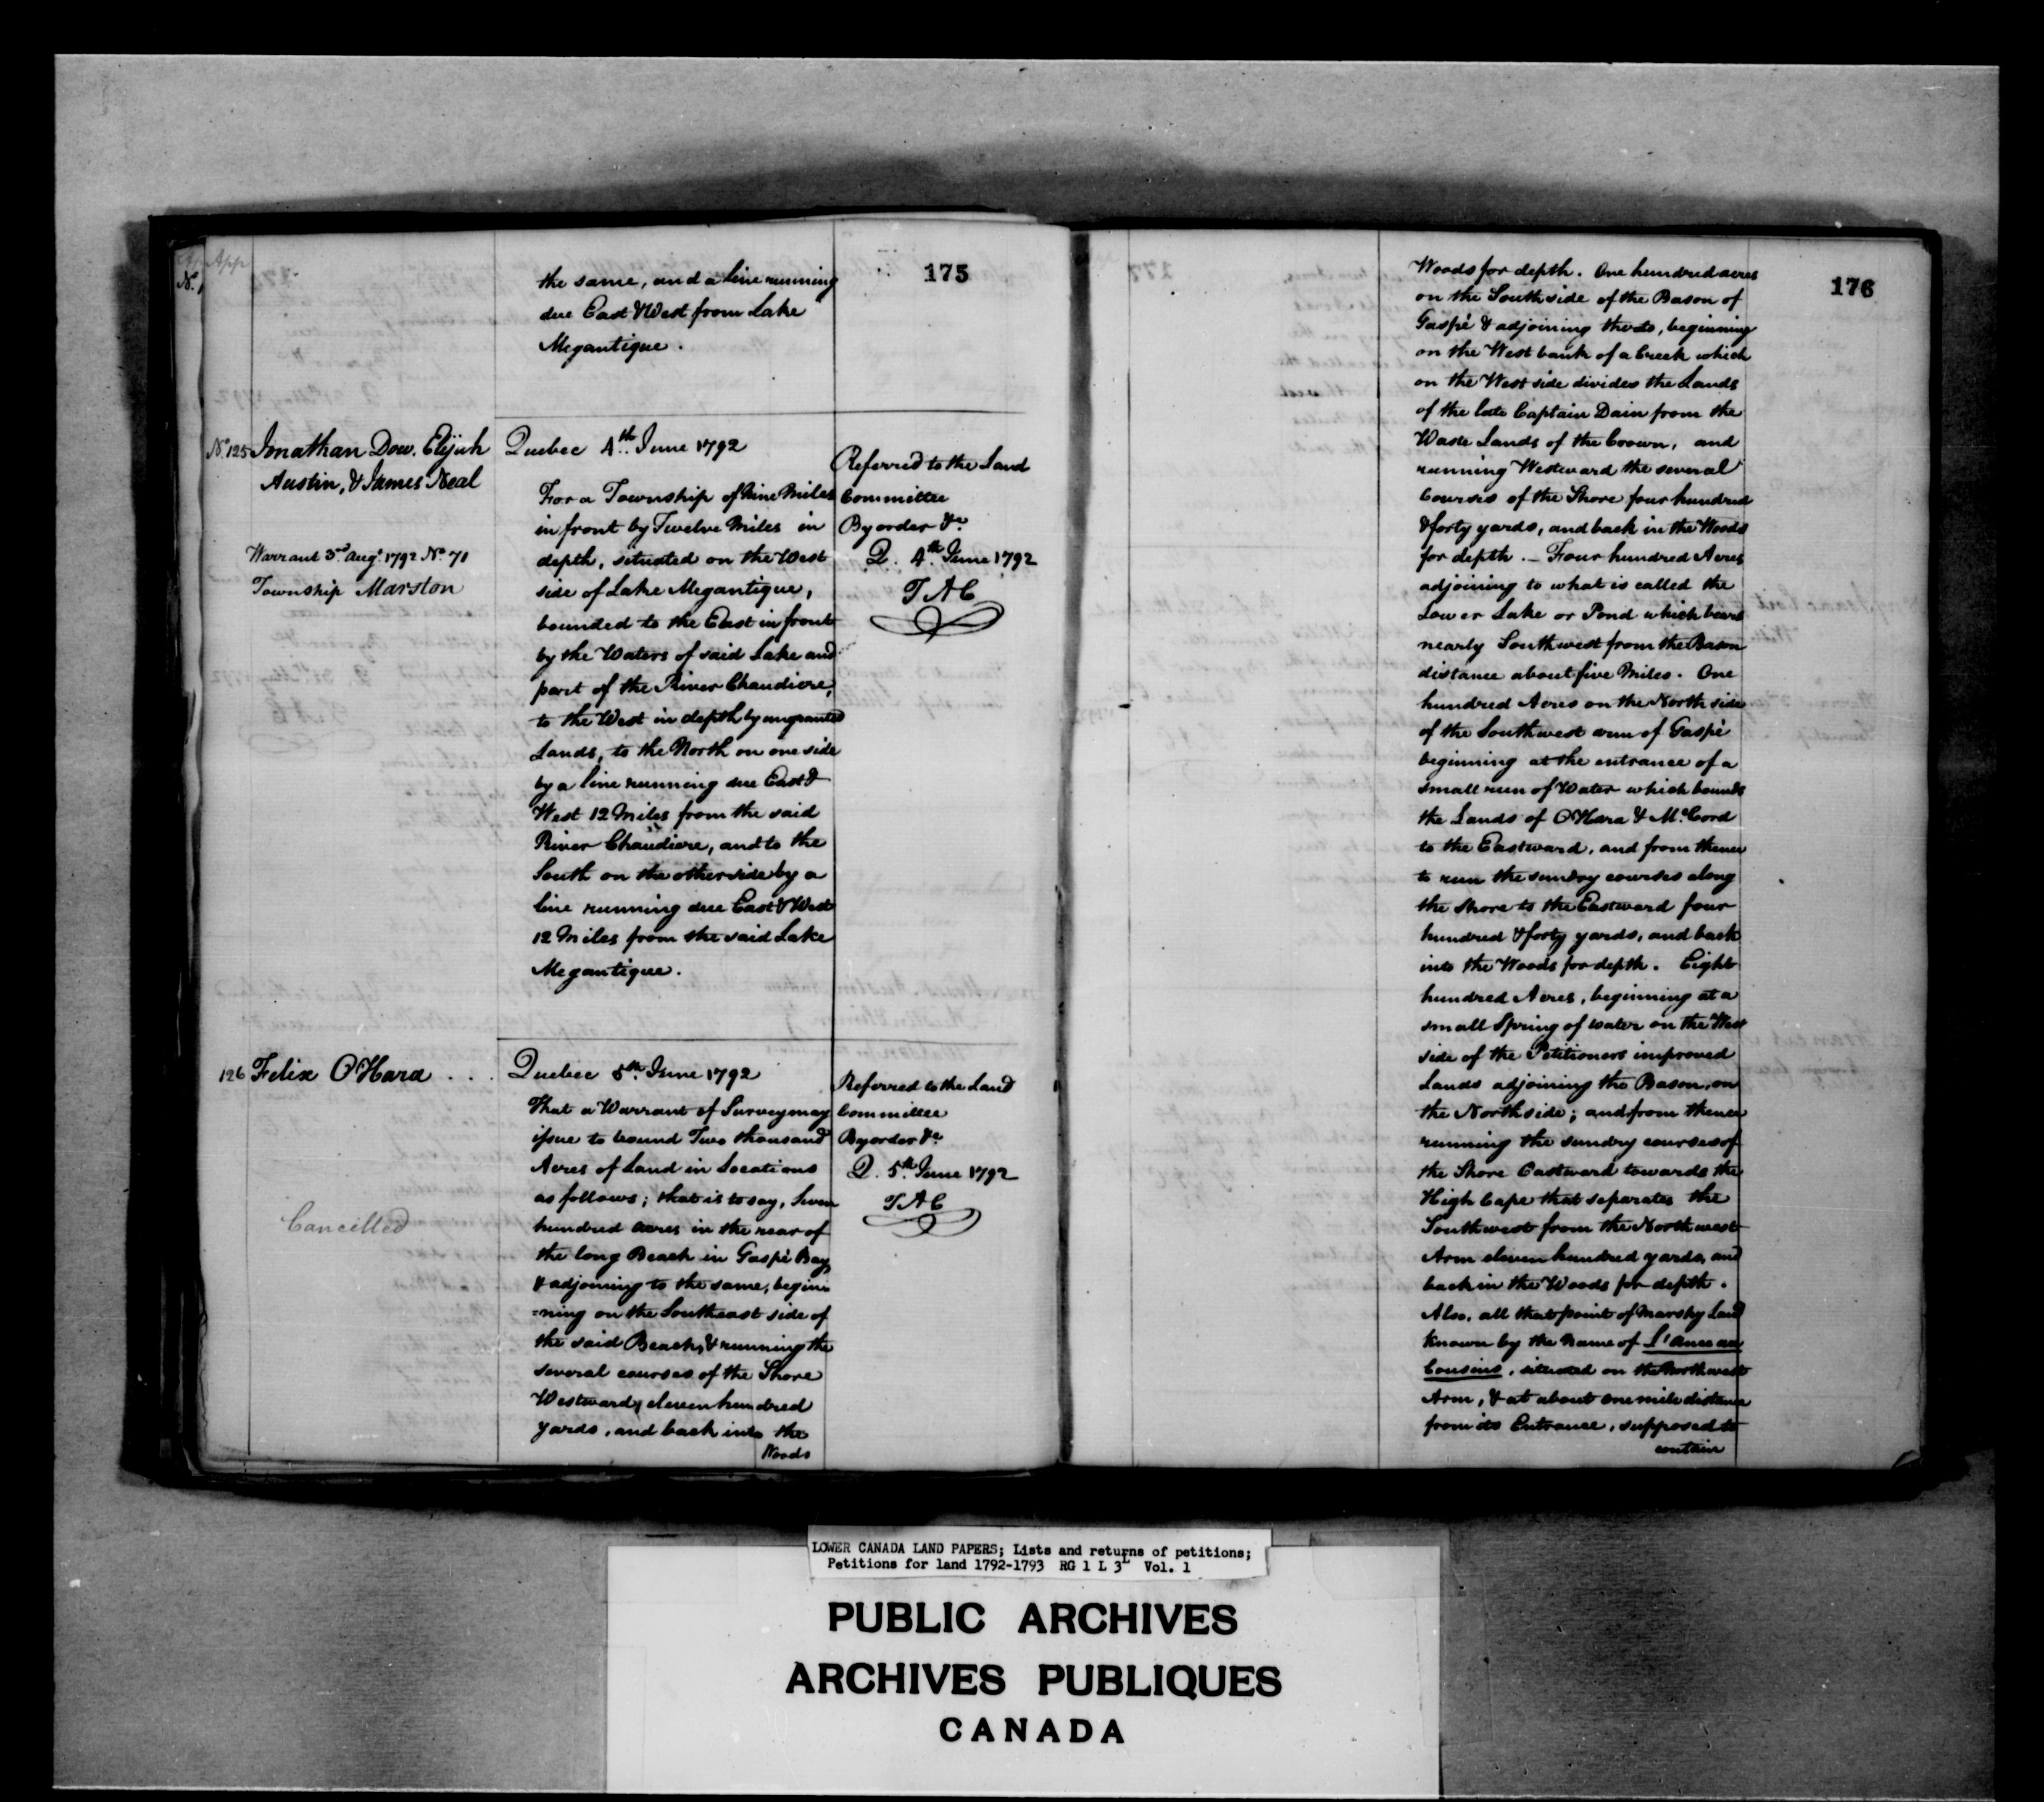 App
No.
175
the same, and a line running
due East & West from Lake
Megantique.
No. 125 Jonathan Dow, Elijah
Austin, & James Neal
Warrant 3rd Augt. 1792 No. 71
Township Marston
Quebec 4th. June 1792
For a Township of Nine Miles
in front by Twelve Miles in
depth, situated on the West
side of Lake Megantique,
bounded to the East in front
by the Waters of said Lake and
part of the River Chaudiere,
to the West in depth by ungranted
Lands, to the North on one side
by a line running due East &
West 12 Miles from the said
River Chaudiere, and to the
South on the other side by a
line running due East & West
12 Miles from the said Lake
Megantique.
Referred to the Land
Committee
By order &c.
Q. 4th. June 1792
T A C
126 Felix O'Hara . . .
Cancelled
Quebec 5th. June 1792
That a Warrant of Survey may
issue to bound Two thousand
Acres of Land in Locations
as follows; that is to say, Seven
hundred acres in the rear of
the long Beach in Gaspé Bay,
& adjoining to the same, begin
=ning on the Southeast side of
the said Beach, & running the
several courses of the Shore
Westward, eleven hundred
yards, and back into the
Woods
Referred to the Land
Committee
By order &c
Q. 5th. June 1792
T A C
176
Woods for depth. One hundred acres
on the South side of the Bason of
Gaspé & adjoining thereto, beginning
on the West bank of a Creek which
on the West side divides the Lands
of the late Captain Dain from the
Waste Lands of the Crown, and
running Westward the several
Courses of the Shore four hundred
& forty yards, and back in the Woods
for depth. – Four hundred Acres
adjoining to what is called the
Lower Lake or Pond which bears
nearly Southwest from the Bason
distance about five Miles. One
hundred Acres on the North side
of the Southwest arm of Gaspé
beginning at the entrance of a
small run of Water which bounds
the Lands of O'Hara & McCord
to the Eastward, and from thence
to run the sundry courses along
the Shore to the Eastward four
hundred & forty yards, and back
into the Woods for depth. Eight
hundred Acres, beginning at a
small Spring of water on the West
side of the Petitioners improved
Lands adjoining the Bason, on
the North side; and from thence
running the sundry courses of
the Shore Eastward towards the
High Cape that separates the
Southwest from the Northwest
Arm eleven hundred yards, and
back in the Woods for depth.
Also, all that point of Marshy Land
known by the Name of L'ance au
Cousins, situated on the Northwest
Arm, & at about one mile distance
from its Entrance, supposed to
contain
LOWER CANADA LAND PAPERS; Lists and returns of petitions;
Petitions for land 1792-1793 RG 1 L 3L Vol. 1
PUBLIC ARCHIVES
ARCHIVES PUBLIQUES
CANADA